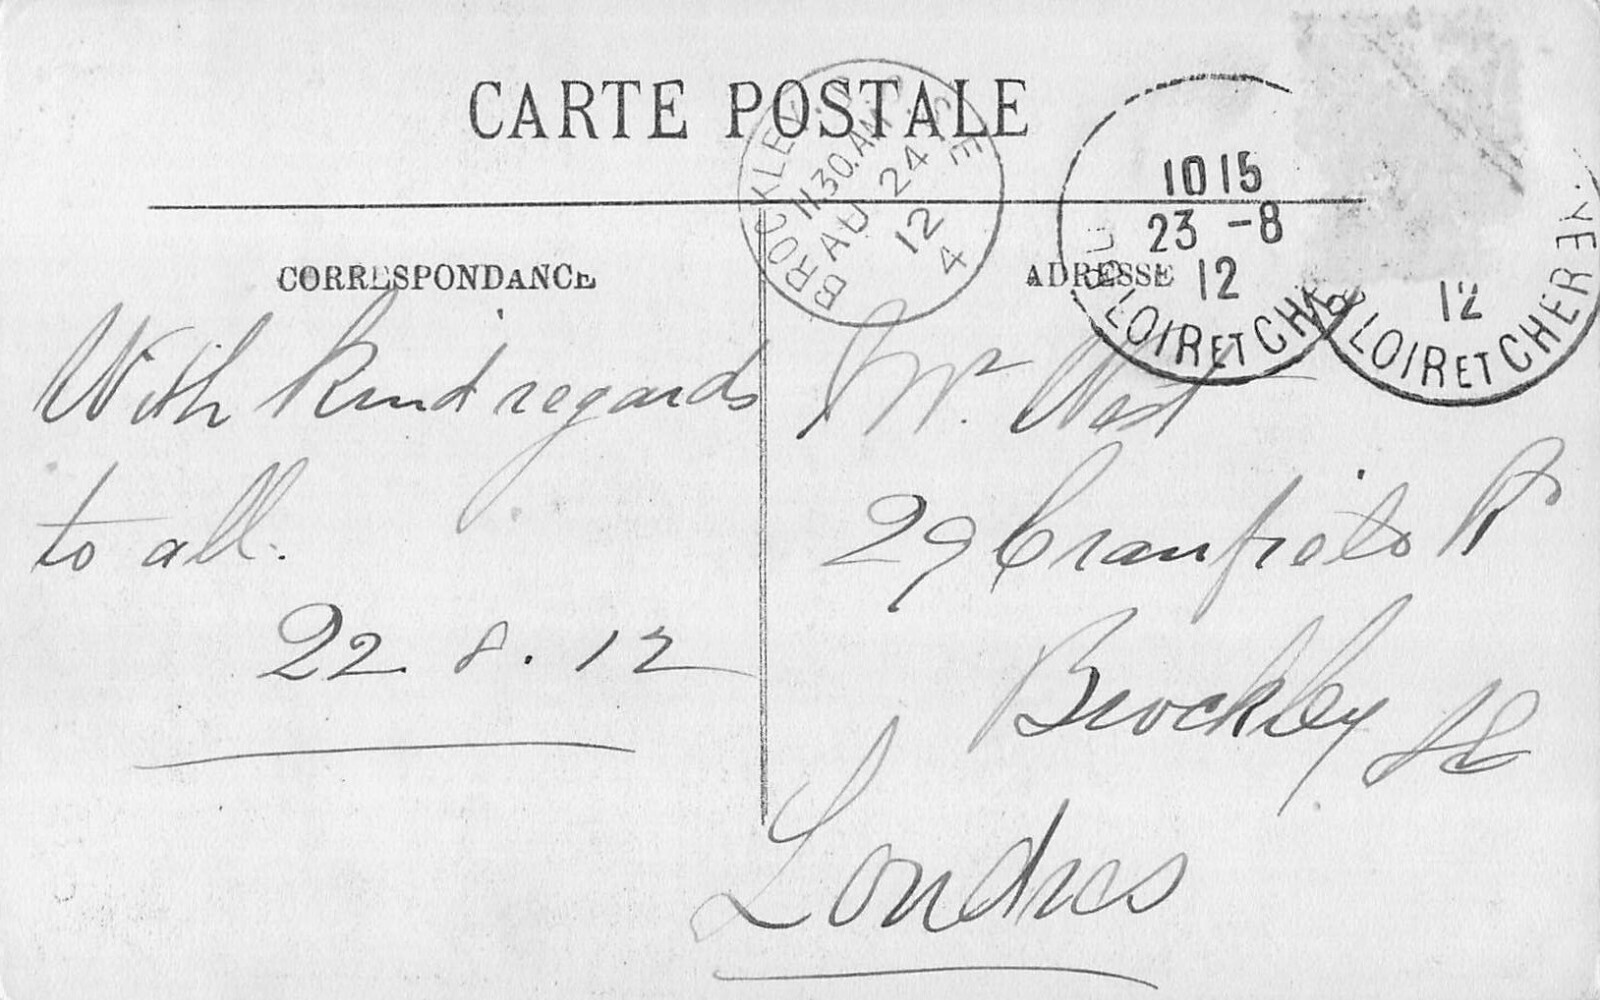 CARTE POSTALE
BROCKLEY S.E
11.30.AM
AU 24
12
4
1015
23 -8
12
LOIR ET CH
12
LOIR ET CHER
CORRESPONDANCE
ADRESSE
With kind regards
to all.
22. 8. 12
Mr. West
29 Cranfield Rd
Brockley SE
Londres